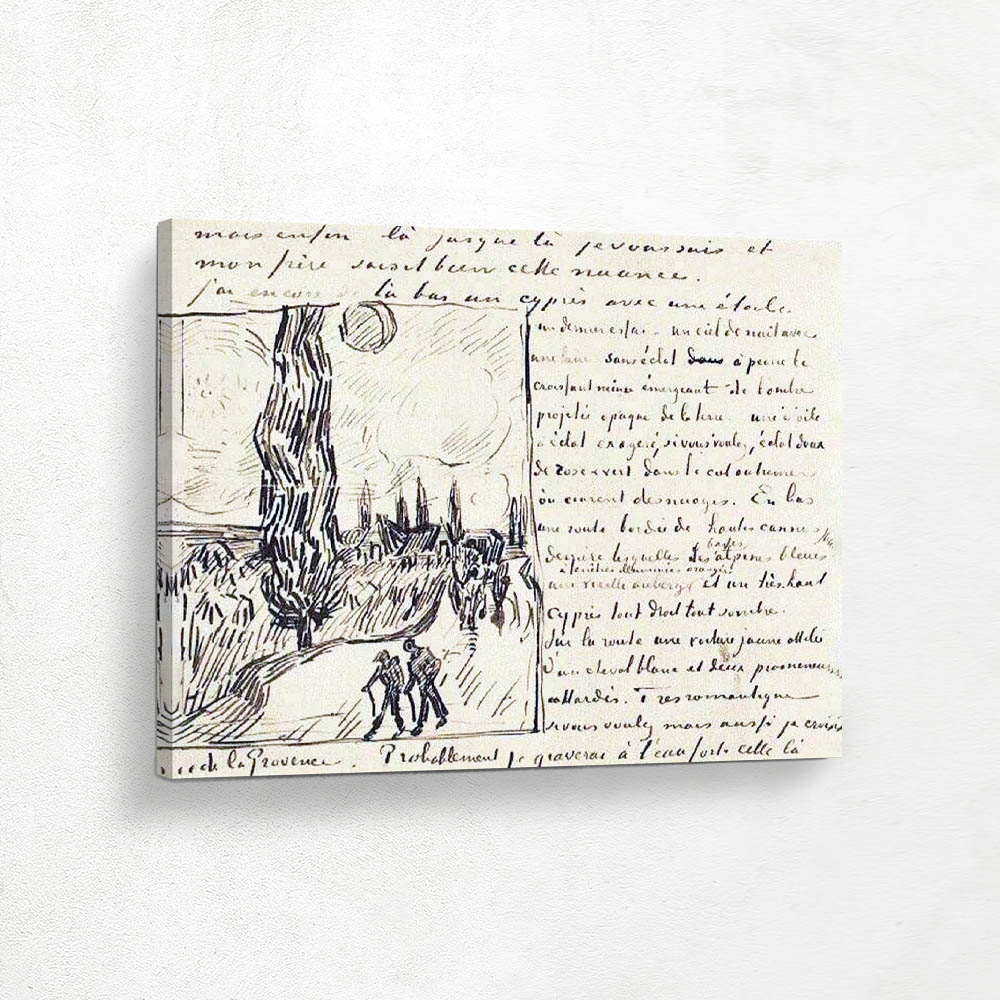 mais enfin là jusque là je vous suis et
mon frère saisit bien cette nuance.
j'ai encore de là bas un cyprès avec une étoile
un dernier essai - un ciel de nuit avec
une lune sans éclat à peine le
croissant mince émergeant de l'ombre
projetée opaque de la terre. une étoile
à éclat exagéré, si vous voulez, éclat doux
de rose et vert dans le ciel outremer
où courent des nuages. En bas
une route bordée de hautes cannes
derrière lesquelles les basses alpines bleues
à fenêtres illuminées orangées
une vieille auberge et un très haut
cyprès tout droit tout sombre.
Sur la route une voiture jaune attelée
d'un cheval blanc et deux promeneurs
attardés. Très romantique
si vous voulez mais aussi je crois
de la Provence. Probablement je graverai à l'eau forte celle là